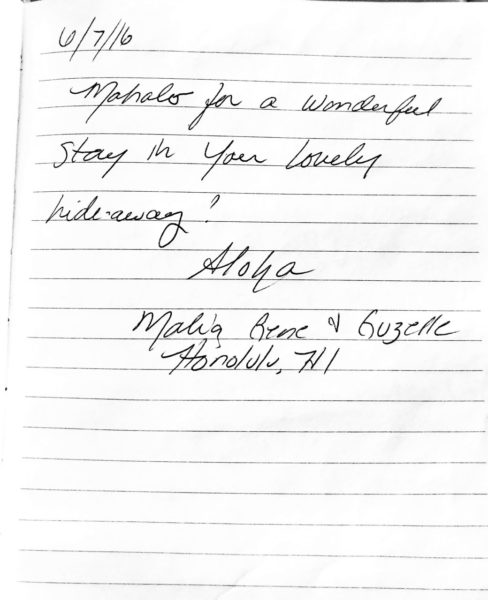 6/7/16
Mahalo for a wonderful
stay in your lovely
hide-away!
Aloha
Malia Gene & Guzelle
Honolulu, HI